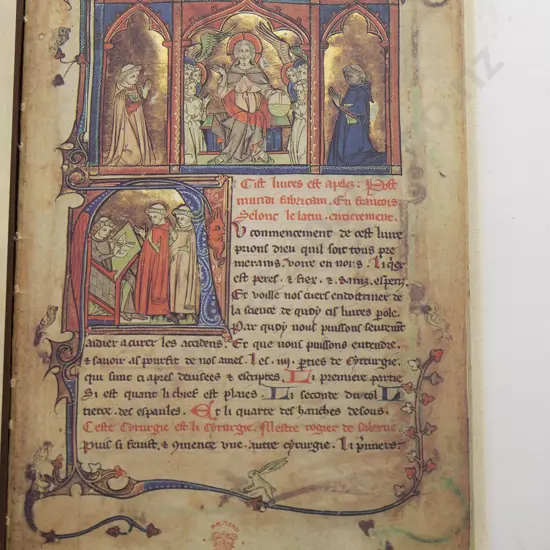 Cist liures est apelez: Post
mundi fabricam. En francois
Selonc le latin. entierement.
U commencement de cest liure
prions dieu quil soit tous pre
merains, voire en nous. Li qex
est peres. & fiex. & sainz. esperiz.
Et voille nos cuers endoctriner de
la science de quoy cis liures pole.
Par quoy nous puissons seurement
aidier a curer les accidens. Et que nous puissons entendre.
& sauoir. as pourfit de nos ames. Les. iiij. parties de Cyrurgie.
qui sunt ci apres deuisees & escriptes. Li premiere partie
Si est quant li chief est plaies. Li seconde du col Li
tierce. des espaules. Et li quarte des hanches desous.
Ceste Cyrurgie est li Cyrurgie. Mestre rogier de salerne.
Puis si fenist, & 9mence vne. autre cyrurgie. Li primero.